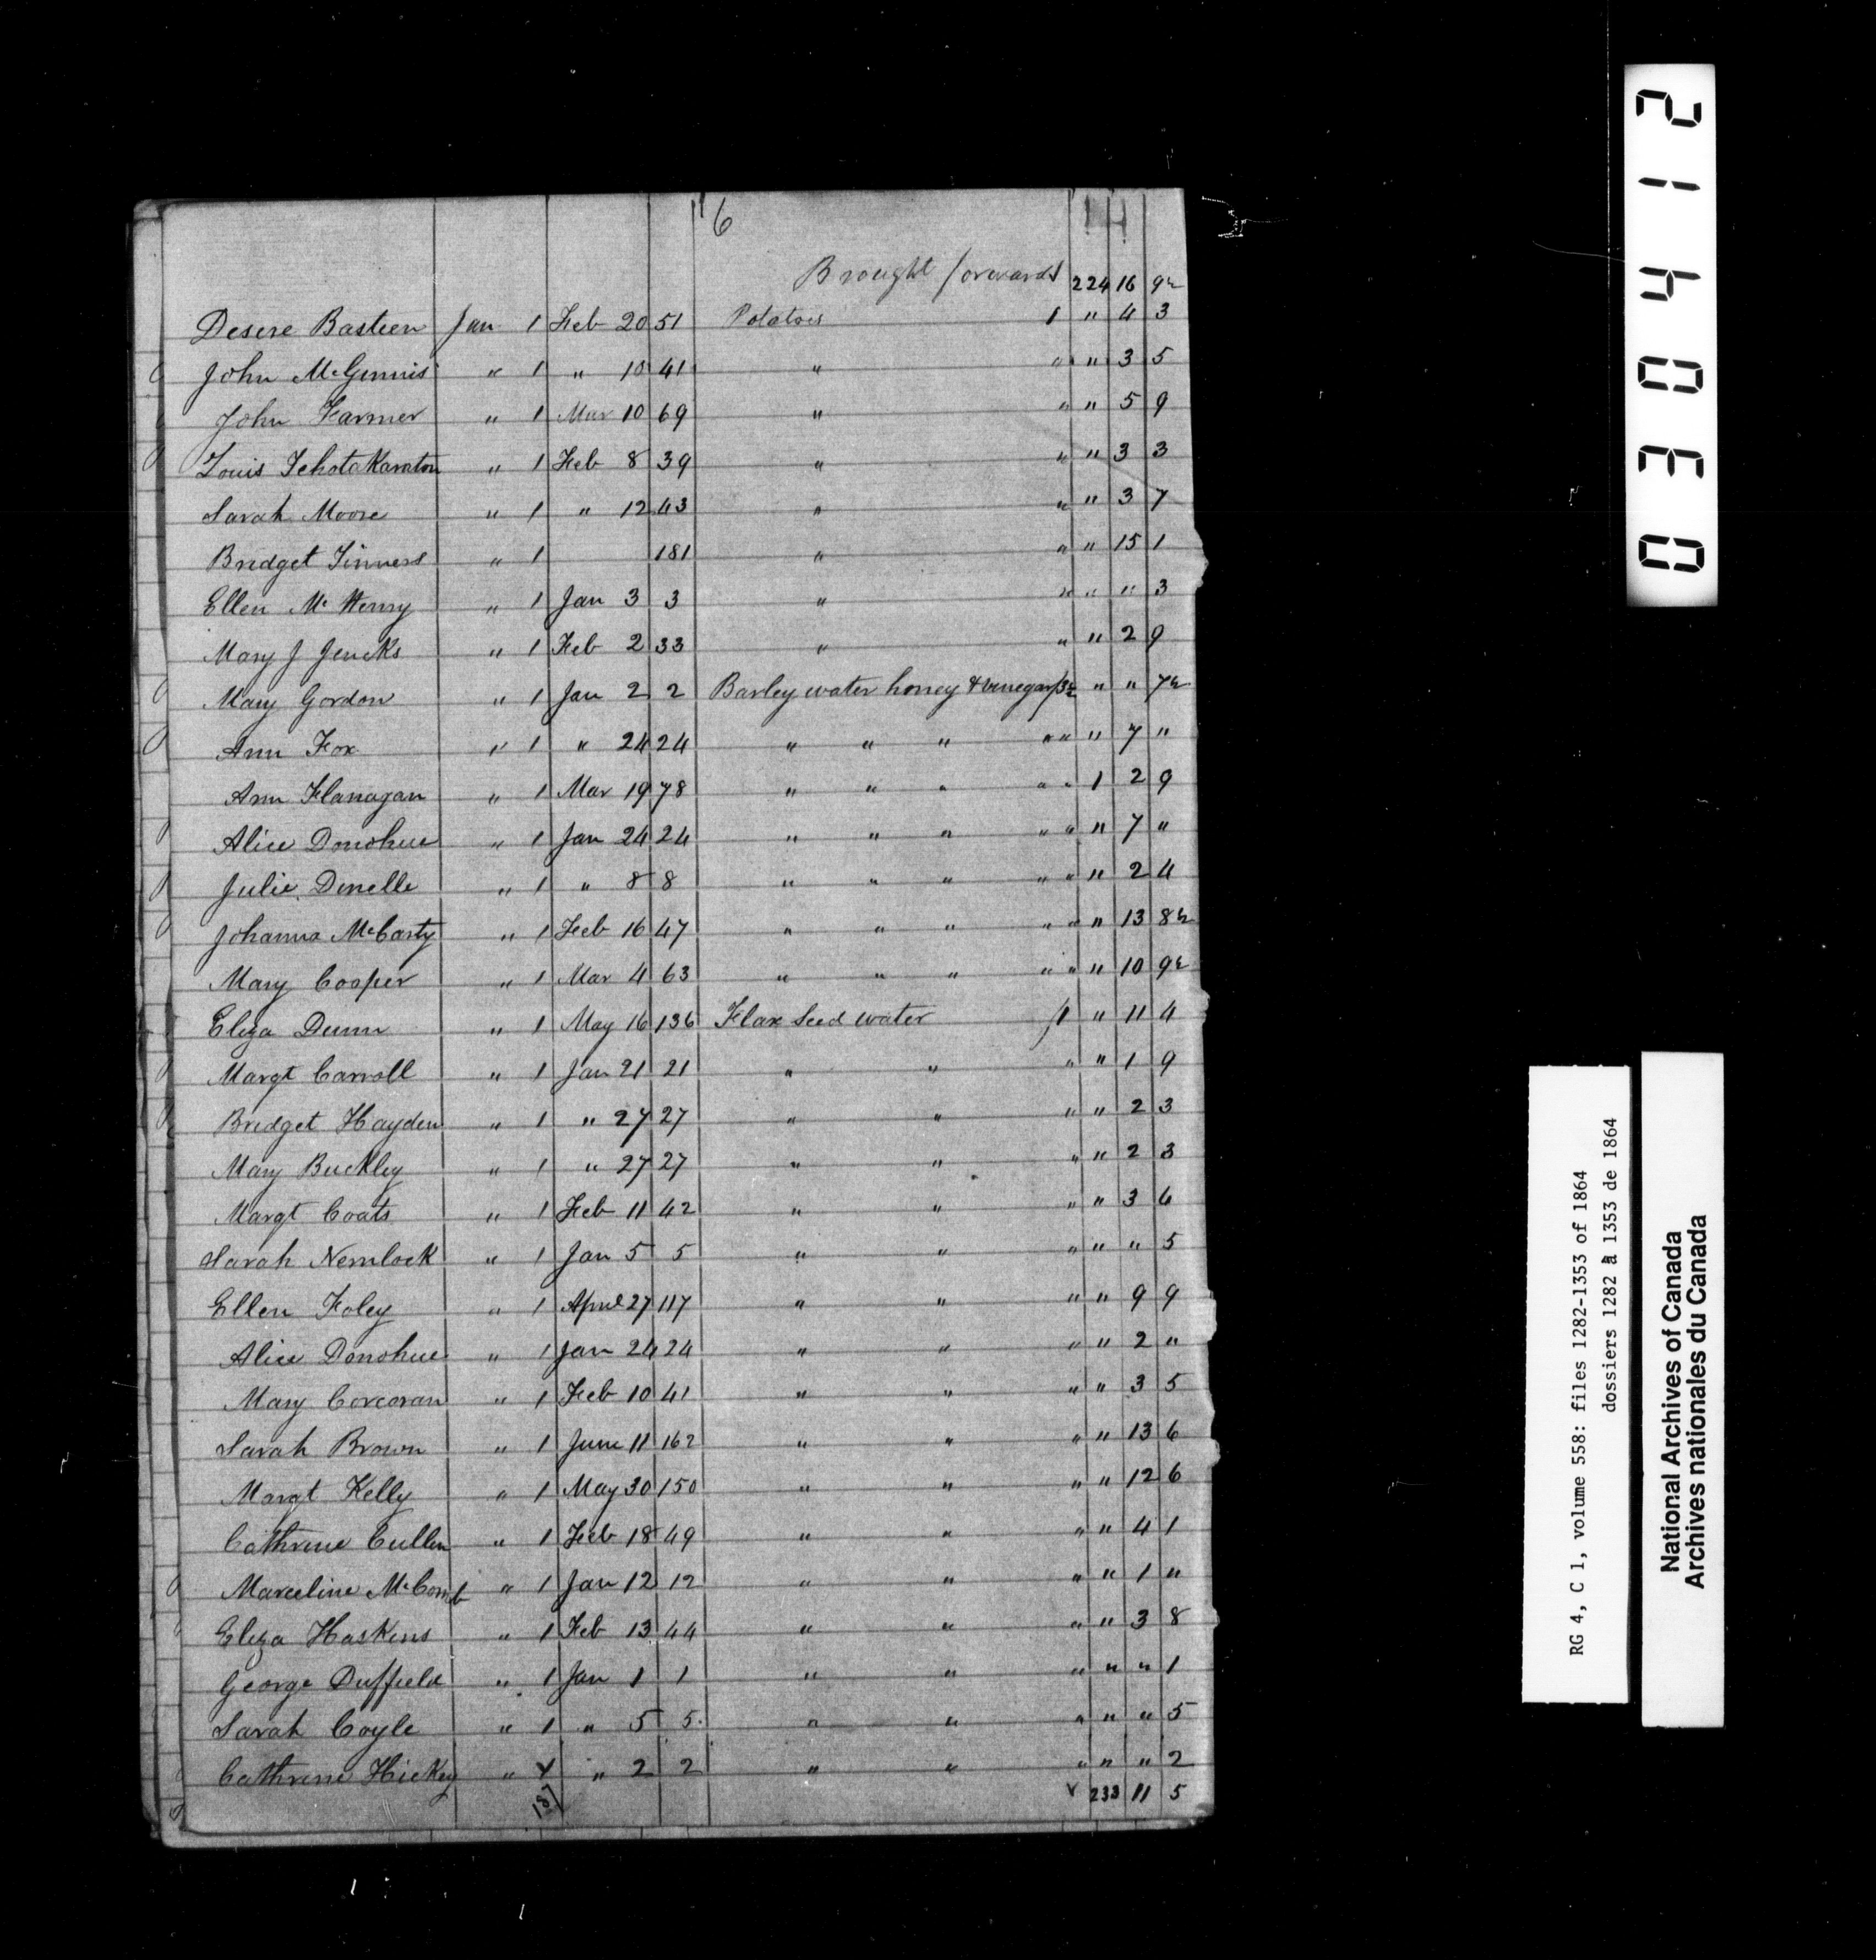 6
14
Brought forwards 224 16 9½
Desere Basteen Jan 1 Feb 20 51 Potatoes 1 " 4 3
John McGinnis " 1 " 10 41 " " " 3 5
John Farmer " 1 Mar 10 69 " " " 5 9
Louis " 1 Feb 8 39 " " " 3 3
Sarah Moore " 1 " 12 43 " " " 3 7
Bridget " 1 181 " " " 15 1
Ellen McHenry " 1 Jan 3 3 " " " " 3
Mary J Jencks " 1 Feb 2 33 " " " 2 9
Mary Gordon " 1 Jan 2 2 Barley water honey & vinegar /3½ " " 7½
Ann Fox " 1 " 24 24 " " " " " " 7 "
Ann Flanagan " 1 Mar 19 78 " " " " " 1 2 9
Alice Donohue " 1 Jan 24 24 " " " " " " 7 "
Julie Denelle " 1 " 8 8 " " " " " " 2 4
Johanna McCarty " 1 Feb 16 47 " " " " " " 13 8½
Mary Cooper " 1 Mar 4 63 " " " " " " 10 9½
Eliza Dunn " 1 May 16 136 Flax Seed water /1 " 11 4
Margt Carroll " 1 Jan 21 21 " " " " 1 9
Bridget Hayden " 1 " 27 27 " " " " 2 3
Mary Buckley " 1 " 27 27 " " " " 2 3
Margt Coats " 1 Feb 11 42 " " " " 3 6
Sarah Nemlock " 1 Jan 5 5 " " " " " 5
Ellen Foley " 1 April 27 117 " " " " 9 9
Alice Donohue " 1 Jan 24 24 " " " " 2 "
Mary Corcoran " 1 Feb 10 41 " " " " 3 5
Sarah Brown " 1 June 11 162 " " " " 13 6
Margt Kelly " 1 May 30 150 " " " " 12 6
Cathrine Cullen " 1 Feb 18 49 " " " " 4 1
Marceline McComb " 1 Jan 12 12 " " " " 1 "
Eliza Haskins " 1 Feb 13 44 " " " " 3 8
George Duffield " 1 Jan 1 1 " " " " " 1
Sarah Coyle " 1 " 5 5 " " " " " 5
Cathrine Hickey " 1 " 2 2 " " " " " 2
187 233 11 5
030412
RG 4, C 1, volume 558: files 1282-1353 of 1864
dossiers 1282 à 1353 de 1864
National Archives of Canada
Archives nationales du Canada